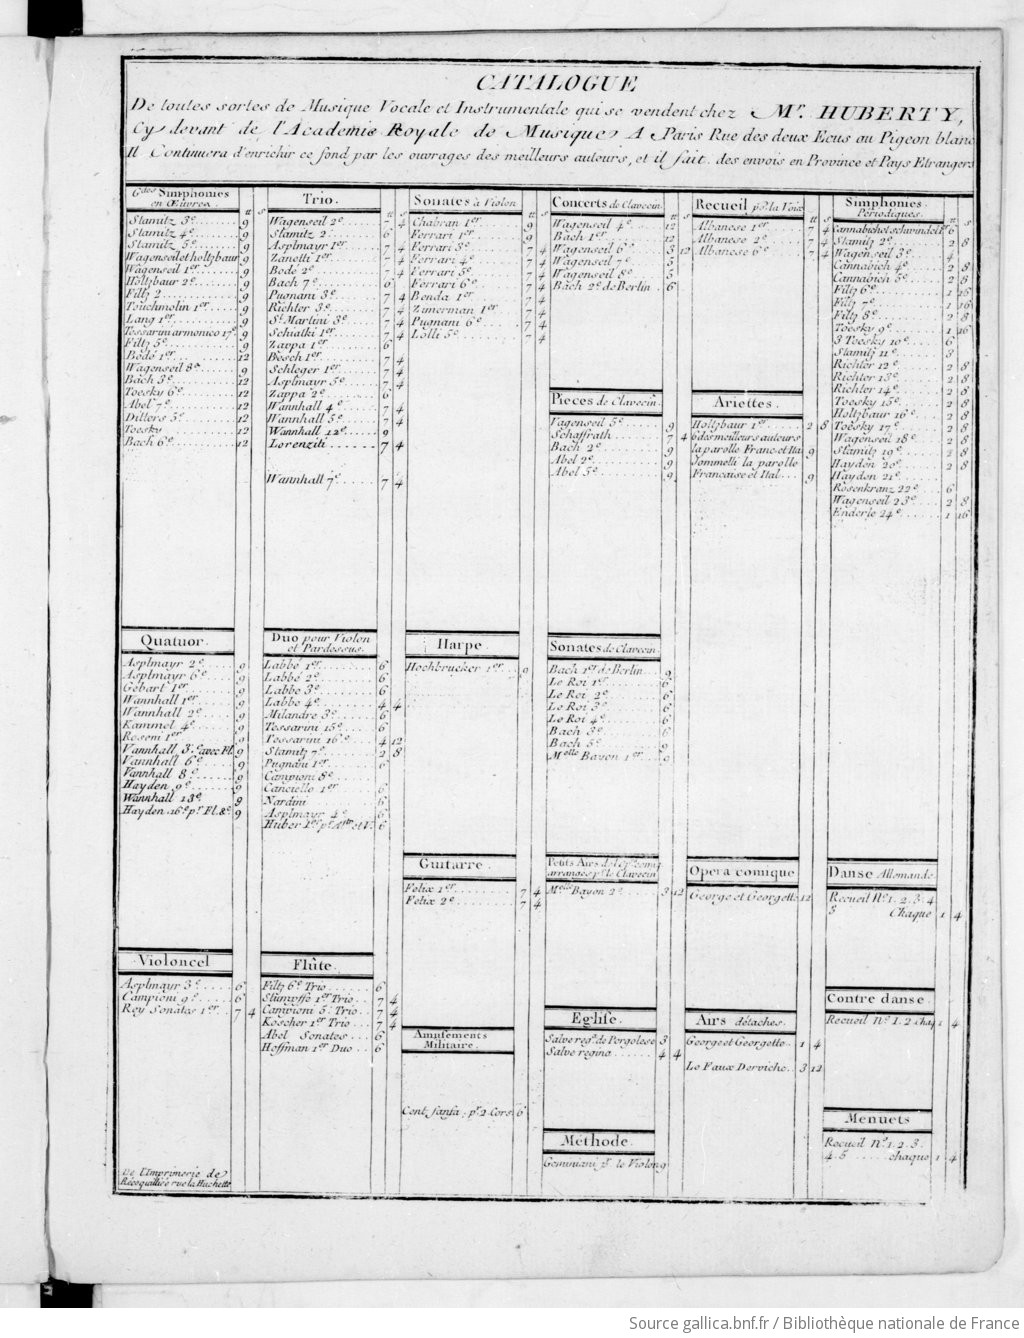 CATALOGUE
De toutes sortes de Musique Vocale et Instrumentale qui se vendent chez Mr. HUBERTY,
Cy devant de l'Academie Royale de Musique A Paris Rue des deux Ecus au Pigeon blanc
Il Continuera d'enrichir ce fond par les ouvrages des meilleurs auteurs, et il fait des envois en Province et Pays Etrangers
Gdes Simphonies
en Œuvres.
Stamitz 3e 9
Stamitz 4e 9
Stamitz 5e 9
Wagenseil et holtzbaur 9
Wagenseil 1er 9
Holtzbaur 2e 9
Filtz 2 9
Touchmolin 1er 9
Lang 1er 9
Tessarini armonico 17e 9
Filtz 5e 9
Bode 1er 12
Wagenseil 8e 9
Bach 3e 12
Toesky 6e 12
Abel 7e 12
Ditters 5e 12
Toesky 12
Bach 6e 12
Trio.
Wagenseil 2e 7 4
Stamitz 2 6
Asplmayr 1er 7 4
Zanetti 1er 7 4
Bode 2e 7 4
Bach 7e 6
Pugnani 3e 7 4
Richter 3e 7 4
St. Martini 3e 7 4
Schiatki 1er 7 4
Zappa 1er 6
Besch 1er 7 4
Schleger 1er 7 4
Asplmayr 5e 7 4
Zappa 2e 6
Wannhall 4e 7 4
Wannhall 5e 7 4
Wannhall 12e 9
Lorenziti 7 4
Wannhall 7e 7 4
Sonates à Violon
Chabran 1er 9
Ferrari 1er 9
Ferrari 3e 7 4
Ferrari 4e 7 4
Ferrari 5e 7 4
Ferrari 6e 7 4
Benda 1er 7 4
Zimerman 1er 7 4
Pugnani 6e 7 4
Lolli 5e 7 4
Concerts de Clavecin
Wagenseil 4e 12
Bach 1er 12
Wagenseil 6e 3 12
Wagenseil 7e 5
Wagenseil 8e 5
Bach 2e de Berlin 6
Pieces de Clavecin
Vagenseil 5e 9
Schaffrath 7 4
Bach 2e 9
Abel 2e 9
Abel 5e 9
Recueil pr. la Voix
Albanese 1er 7 4
Albanese 2e 7 4
Albanese 6e 7 4
Ariettes.
Holtzbaur 1er 2 8
6 des meilleurs auteurs
la parolle Franc. et Ital 9
Jommelli la parolle
Francaise et Ital 9
Simphonies
Periodiques.
Cannabich et schwindel 1er 6
Stamitz 2e 2 8
Wagenseil 3e 4
Cannabich 4e 2 8
Cannabich 5e 2 8
Filtz 6e 1 16
Filtz 7e 1 16
Filtz 8e 2 8
Toesky 9e 1 16
3 Toesky 10e 6
Stamitz 11e 3
Richter 12e 2 8
Richter 13e 2 8
Richter 14e 2 8
Toesky 15e 2 8
Holtzbaur 16e 2 8
Toesky 17e 2 8
Wagenseil 18e 2 8
Stamitz 19e 2 8
Hayden 20e 2 8
Hayden 21e
Rosenkranz 22e 6
Wagenseil 23e 2 8
Enderle 24e 1 16
Quatuor.
Asplmayr 2e 9
Asplmayr 6e 9
Gebart 1er 9
Wannhall 1er 9
Wannhall 2e 9
Kammel 4e 9
Roseni 1er 9
Vannhall 3e avec Fl. 9
Vannhall 6e 9
Vannhall 8e 9
Hayden 9e 9
Wannhall 13e 9
Hayden 16e pr Fl. &c 9
Duo pour Violon
et Pardessus.
Labbé 1er 6
Labbé 2e 6
Labbé 3e 6
Labbé 4e 4 4
Milandre 3e 6
Tessarini 15e 6
Tessarini 16e 4 12
Stamitz 7e 2 8
Pugnani 1er 6
Campioni 8e
Canciello 1er 6
Nardini 6
Asplmayr 4e 6
Huber 1er pr Alto et V. 6
Harpe.
Hochbrucker 1er 9
Sonates de Clavecin.
Bach 1er de Berlin 9
Le Roi 1er 6
Le Roi 2e 6
Le Roi 3e 6
Le Roi 4e 6
Bach 3e 6
Bach 5e 9
Melle Bayon 1er 9
Guitarre.
Felix 1er 7 4
Felix 2e 7 4
Petits Airs de l'opa comiq
arrangés pr. le Clavecin
Melle Bayon 2e 3 12
Opera comique
George et Georgette 12
Danse Allemande
Recueil No. 1. 2. 3. 4
5 Chaque 1 4
Violoncel
Asplmayr 3e 6
Campioni 9e 6
Rey Sonates 1er 7 4
Flûte.
Filtz 6e Trio 6
Stumpffe 1er Trio 7 4
Campioni 5e Trio 7 4
Koscher 1er Trio 7 4
Abel Sonates 6
Hoffman 1er Duo 6
Amusements
Militaire.
Cent fanfa: pr. 2 Cors 6
Eglise.
Salve rega de Pergolese 3
Salve regina 4 4
Méthode.
Geminiani pr. le Violon 9
Airs détachés
George et Georgette 1 4
Le Faux Derviche 3 12
Contre danse.
Recueil No. 1. 2 chaq 1 4
Menuets
Recueil No. 1. 2. 3.
4. 5 chaque 1 4
De l'Imprimerie de
Récoquilliée rue la Huchette
Source gallica.bnf.fr / Bibliothèque nationale de France